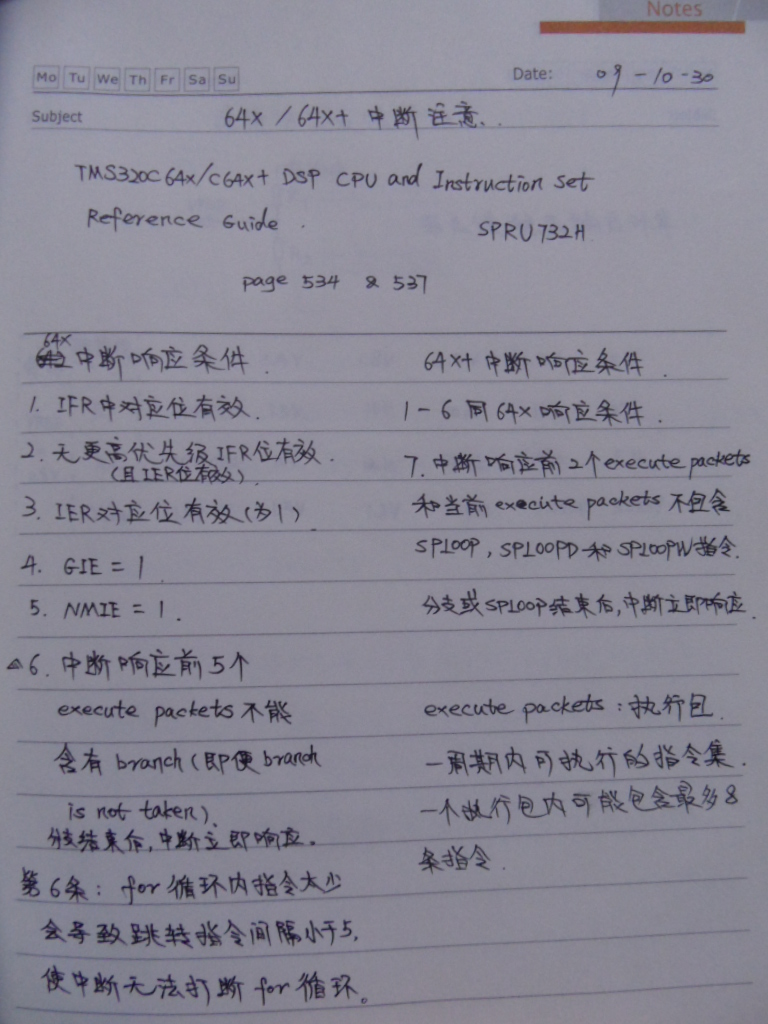 Notes
Mo Tu We Th Fr Sa Su
Date: 09-10-30
Subject 64x / 64x+ 中断注意.
TMS320C64x/C64x+ DSP CPU and Instruction Set
Reference Guide. SPRU732H
page 534 & 537
64x 中断响应条件.
1. IFR中对应位有效.
2. 无更高优先级IFR位有效.
(且IER位有效).
3. IER对应位有效(为1)
4. GIE = 1.
5. NMIE = 1.
△6. 中断响应前5个
execute packets不能
含有branch(即便branch
is not taken).
分支结束后,中断立即响应。
第6条: for循环内指令太少
会导致跳转指令间隔小于5,
使中断无法打断for循环。
64x+ 中断响应条件.
1-6同64x响应条件.
7. 中断响应前2个execute packets
和当前execute packets不包含
SPLOOP, SPLOOPD和SPLOOPW指令.
分支或SPLOOP结束后,中断立即响应.
execute packets:执行包.
一周期内可执行的指令集.
一个执行包内可能包含最多8
条指令.